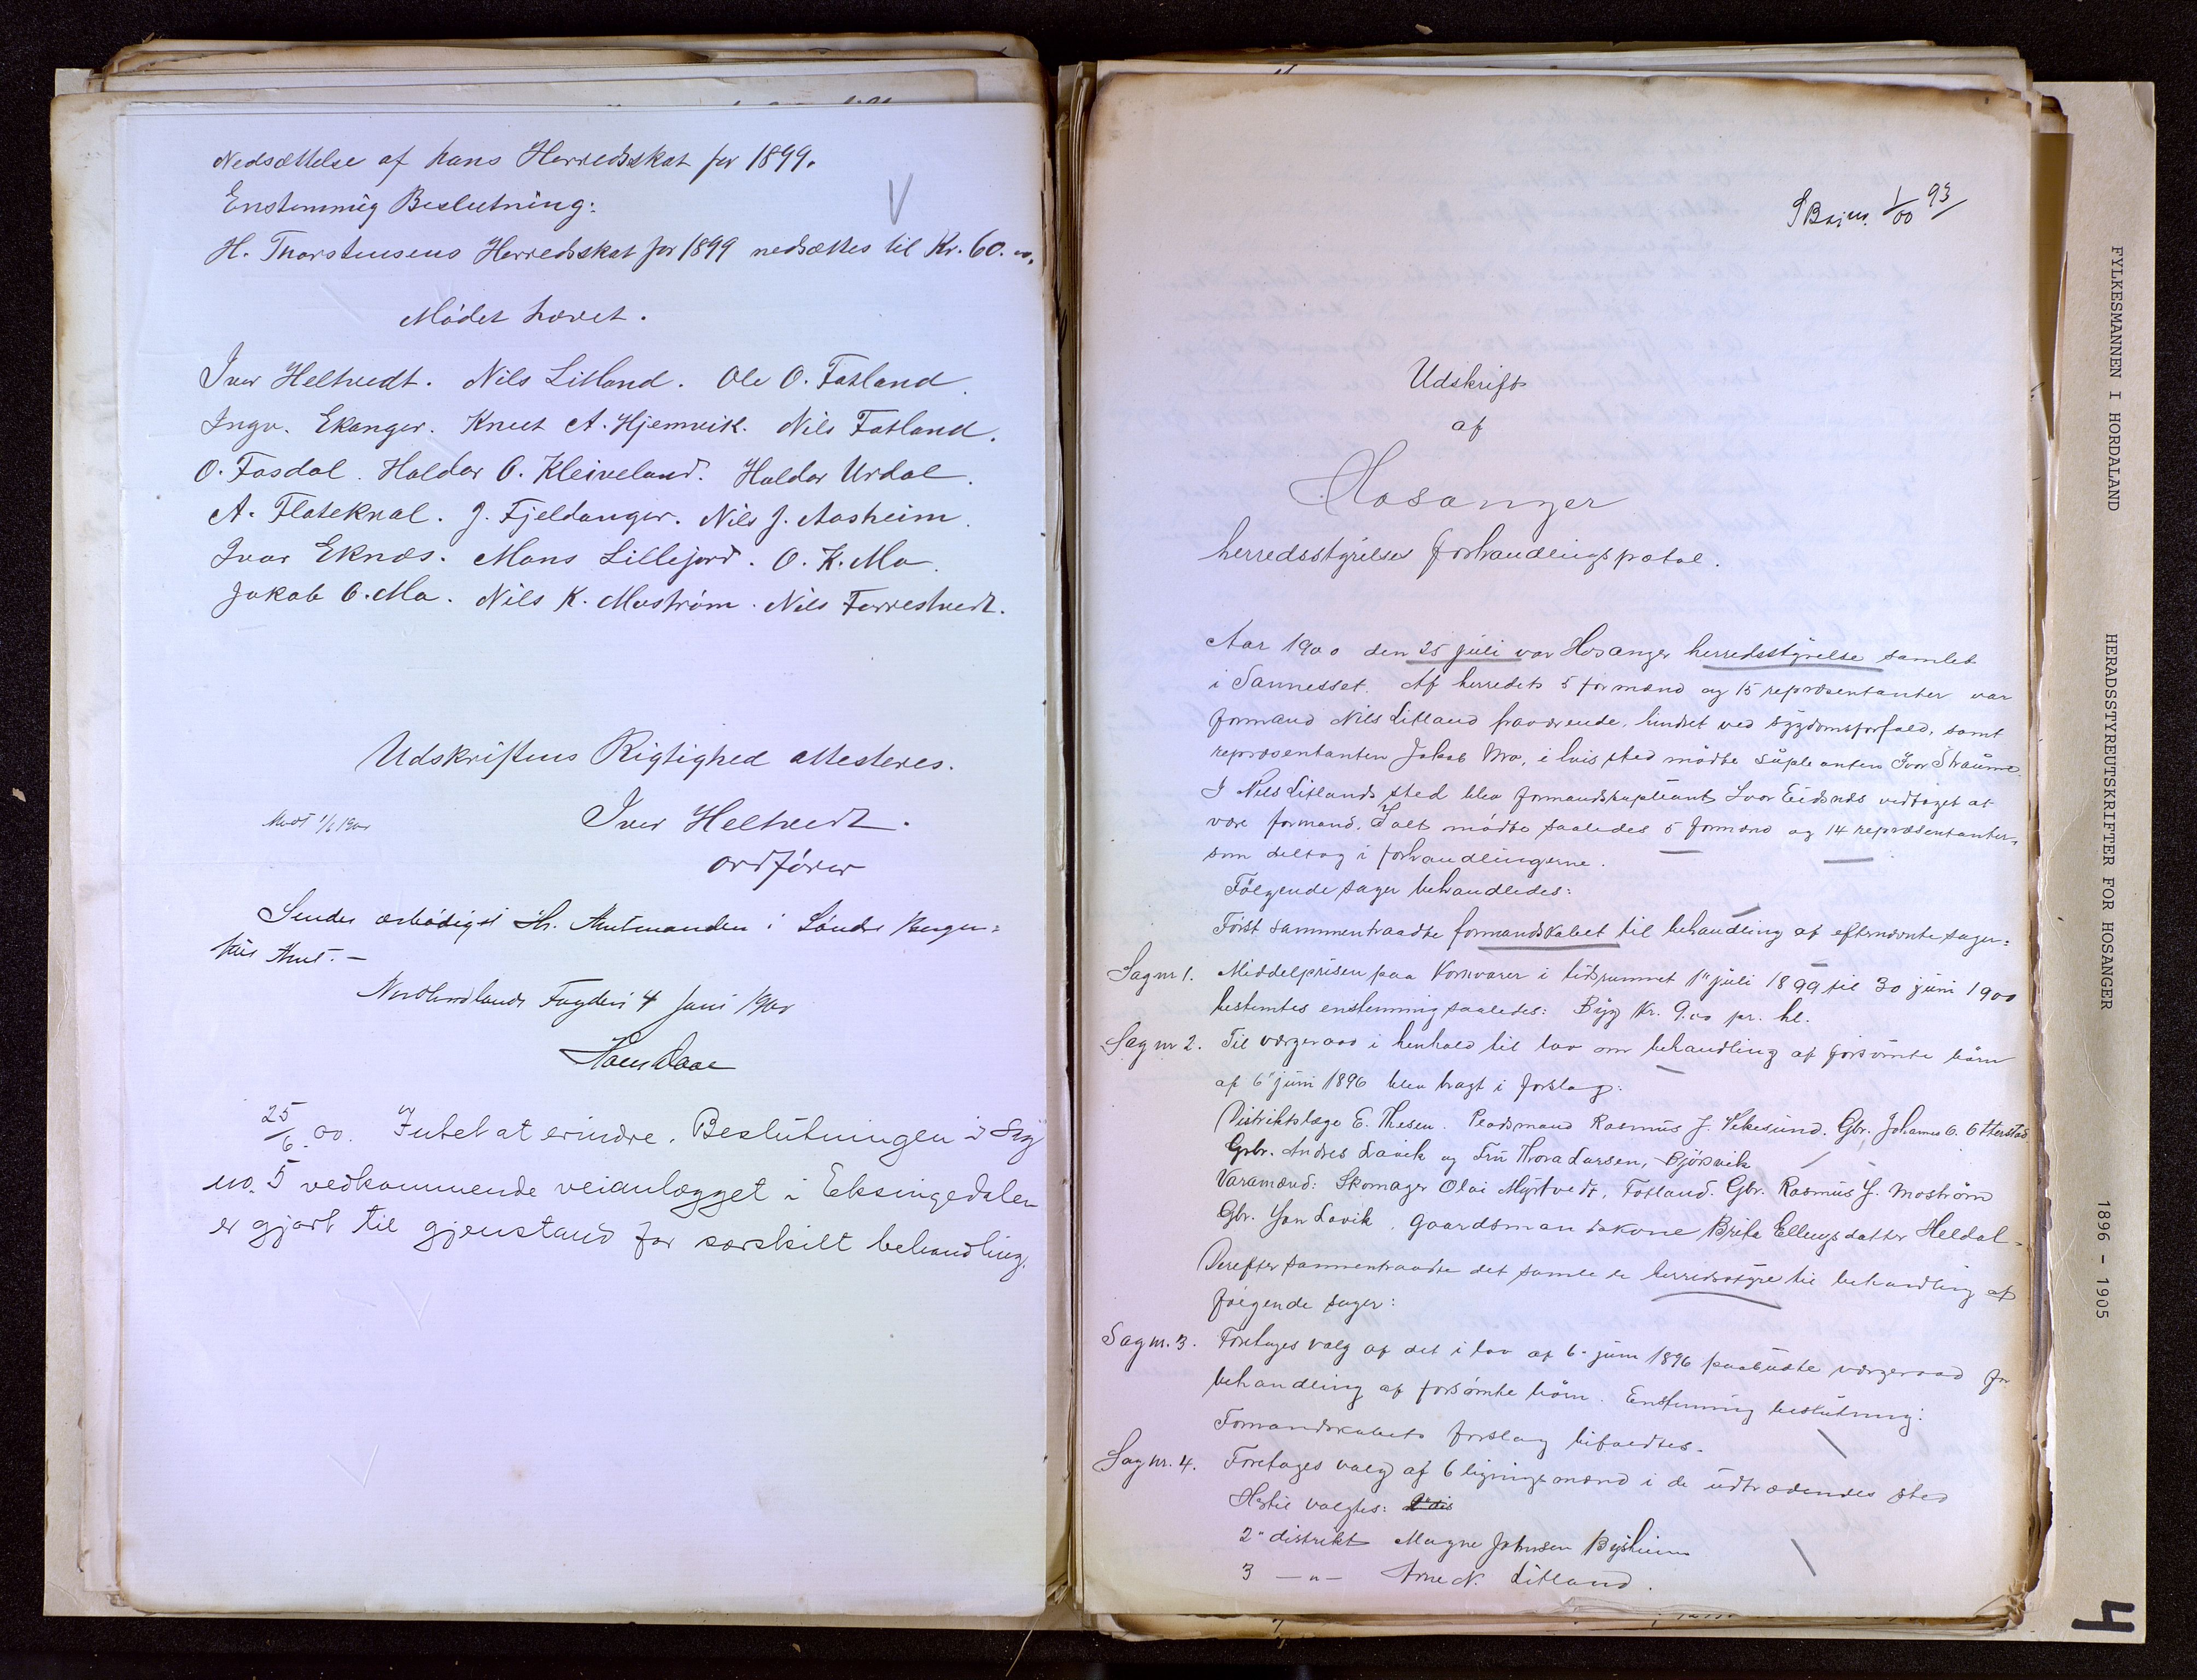 Nedsættelse af hans Herredsskat for 1899.
Enstemmig Beslutning:
H. Thorstensens Herredsskat for 1899 nedsættes til Kr. 60.00.
Mødet hævet.
Iver Heltvedt. Nils Litland. Ole O. Fatland.
Ingv. Ekanger. Knut A. Hjemvik. Nils Fatland.
O. Fosdal. Haldor O. Kleiveland. Haldor Urdal.
A. Flatekval. J. Fjeldanger. Nils J. Aasheim.
Ivar Eknæs. Mons Lillejord. O. K. Mo.
Jakob O. Mo. Nils K. Mostrøm. Nils Farrestvedt.
Udskriftens Rigtighed attesteres.
Modt 1/6 1900
Iver Heltvedt.
ordfører
Sendes ærbødigst Hr. Amtmanden i Søndre Bergen=
hus Amt. —
Nordhordlands Fogderi 4 Juni 1900
25/6.00. Intet at erindre. Beslutningen i Sag
no. 5 vedkommende veianlægget i Eksingedalen
er gjort til gjenstand for særskilt behandling.
93
Udskrift
af
Hosanger
herredsstyrelses forhandlingspotol.
Aar 1900 den 25 juli var Hosanger herredsstyrelse samlet
i Sannesset. Af herredets 5 formænd og 15 repræsentanter var
formand Nils Litland fraværende, hindret ved sygdomsforfald, samt
repræsentanten Jakob Mo, i hvis sted mødte supleanten Ivar Straume.
I Nils Litlands sted blev formandsupleant Ivar Eidsnæs vedtaget at
være formand. Ialt mødte saaledes 5 formænd og 14 repræsentanter,
som deltog i forhandlingerne.
Følgende sager behandledes:
Først sammentraadte formandskabet til behandling af efternævnte sager:
Sag nr 1. Middelprisen paa Kornvarer i tidsrummet 1" juli 1899 til 30 juni 1900
bestemtes enstemmig saaledes: Byg Kr. 9.00 pr. hl.
Sag nr 2. Til værgeraad i henhold til lov om behandling af forsømte børn
af 6" juni 1896 blev bragt i forslag:
Distriktslæge E. Thesen. Leadsmand Rasmus J. Vikesund. Gbr. Johannes O. Otterstad
Grbr. Andres Lavik og Fru Thora Larsen, Bjørsvik
Varamænd: Skomager Olai Myrtvedt, Fotland. Gbr. Rasmus J. Mostrøm
Gbr. Jon Lavik. gaardsmandskone Brita Ellingsdatter Heldal.
Derefter sammentraadte det samlede herredsstyre til behandling af
følgende sager:
Sag nr. 3. Foretages valg af det i lov af 6. juni 1896 paabudte værgeraad for
behandling af forsømte børn. Enstemmig beslutning:
Formandskabets forslag bifaldtes.
Sag nr. 4. Foretages valg af 6 ligningsmænd i de udtrædendes sted
Hertil valgtes:
2" distrikt Magne Johnsen Bysheim
3 —"— Arne N. Litland.
FYLKESMANNEN I HORDALAND
HERADSSTYREUTSKRIFTER FOR HOSANGER
1896 - 1905
4